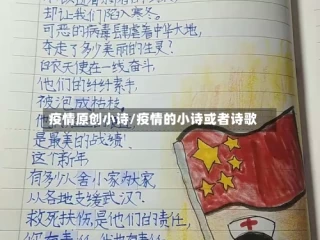 却让我们陷入寒冬。
可恶的病毒肆虐着中华大地,
夺走了多少美丽的生灵?
白衣天使在一线奋斗,
他们的纤纤素手,
被泡成枯枝
疫情原创小诗/疫情的小诗或者诗歌
是最美的战绩。
这个新年
有多少人舍小家为大家
从各地支援武汉?
救死扶伤是他们的责任,